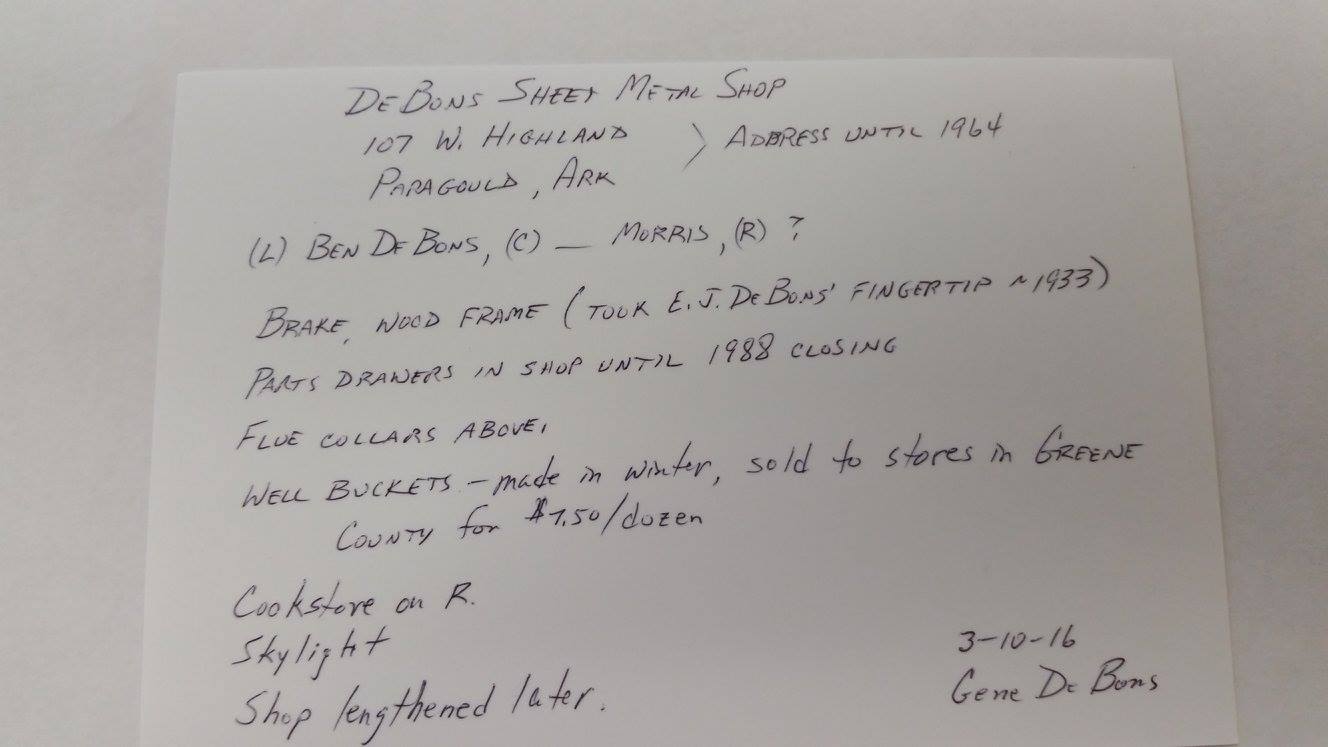 DE BONS SHEET METAL SHOP
107 W. HIGHLAND > ADDRESS UNTIL 1964
PARAGOULD, ARK
(L) BEN DE BONS, (C) — MORRIS, (R) ?
BRAKE, WOOD FRAME (TOOK E. J. DE BONS' FINGERTIP ~1933)
PARTS DRAWERS IN SHOP UNTIL 1988 CLOSING
FLUE COLLARS ABOVE.
WELL BUCKETS - made in winter, sold to stores in GREENE
COUNTY for $7.50/dozen
Cookstove on R.
Skylight
Shop lengthened later.
3-10-16
Gene De Bons